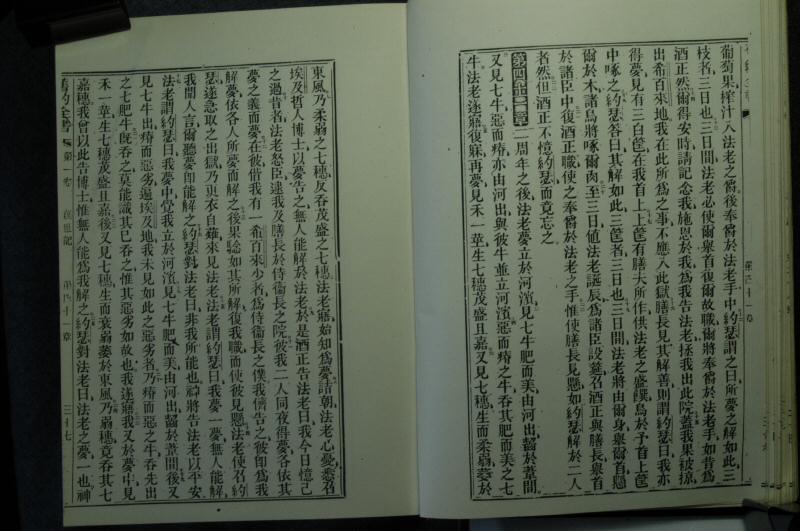 葡萄果搾汁入法老之爵後奉爵於法老手中約瑟謂之曰所夢之解如此三
枝者三日也三日間法老必使爾舉首復爾故職爾將奉爵於法老手如昔為
酒正然爾得安時請記念我施恩於我為我告法老拯我出此院蓋我果被掠
出希百來地我在此所為之事不應入此獄膳長見其解善則謂約瑟曰我亦
得夢見有三白筐在我首上上筐有膳夫所作供法老之盛饌鳥於予首上筐
中啄之約瑟答曰其解如此三筐者三日也三日間法老將由爾身舉爾首懸
爾於木諸鳥將啄爾肉至三日值法老誕辰為諸臣設筵召酒正與膳長舉首
於諸臣中復酒正職使之奉爵於法老之手惟使膳長見懸如約瑟解於二人
者然但酒正不憶約瑟而竟忘之
第四十一章二周年之後法老夢立於河濱見七牛肥而美由河出齧於葦間
又見七牛惡而瘠亦由河出與彼牛並立河濱惡而瘠之牛吞其肥而美之七
牛法老遂寤復寐再夢見禾一莖生七穗茂盛且嘉又見七穗生而柔弱萎於
東風乃柔弱之七穗反吞茂盛之七穗法老寤始知為夢詰朝法老心憂悉召
埃及哲人博士以夢告之無人能解於法老於是酒正告法老曰我今日憶己
之過昔者法老怒臣逮我及膳長於侍衞長之院彼我二人同夜得夢各依其
夢之義而夢在彼偕我有一希百來少者為侍衞長之僕我儕告之彼卽為我
解夢依各人所夢而解之後果驗如其所解復我職而使彼見懸法老使召約
瑟遂急取之出獄乃更衣自薙來見法老法老謂約瑟曰我夢一夢無人能解
我聞人言爾聽夢卽能解之約瑟對法老曰非我所能也神將告法老以平安
法老謂約瑟曰我夢中覺我立於河濱見七牛肥而美由河出齧於葦間後又
見七牛出瘠而惡劣遍埃及地我未見如此之惡劣者乃瘠而惡之牛吞先出
之七肥牛旣吞之莫能識其已吞之惟其惡劣如故也我遂寤我又於夢中見
禾一莖生七穗茂盛且嘉後又見七穗生而衰弱萎於東風乃弱穗竟吞其七
嘉穗我曾以此告博士惟無人能為我解之約瑟對法老曰法老之夢一也神
舊約全書 第一卷 創世記 第四十一章 三十七